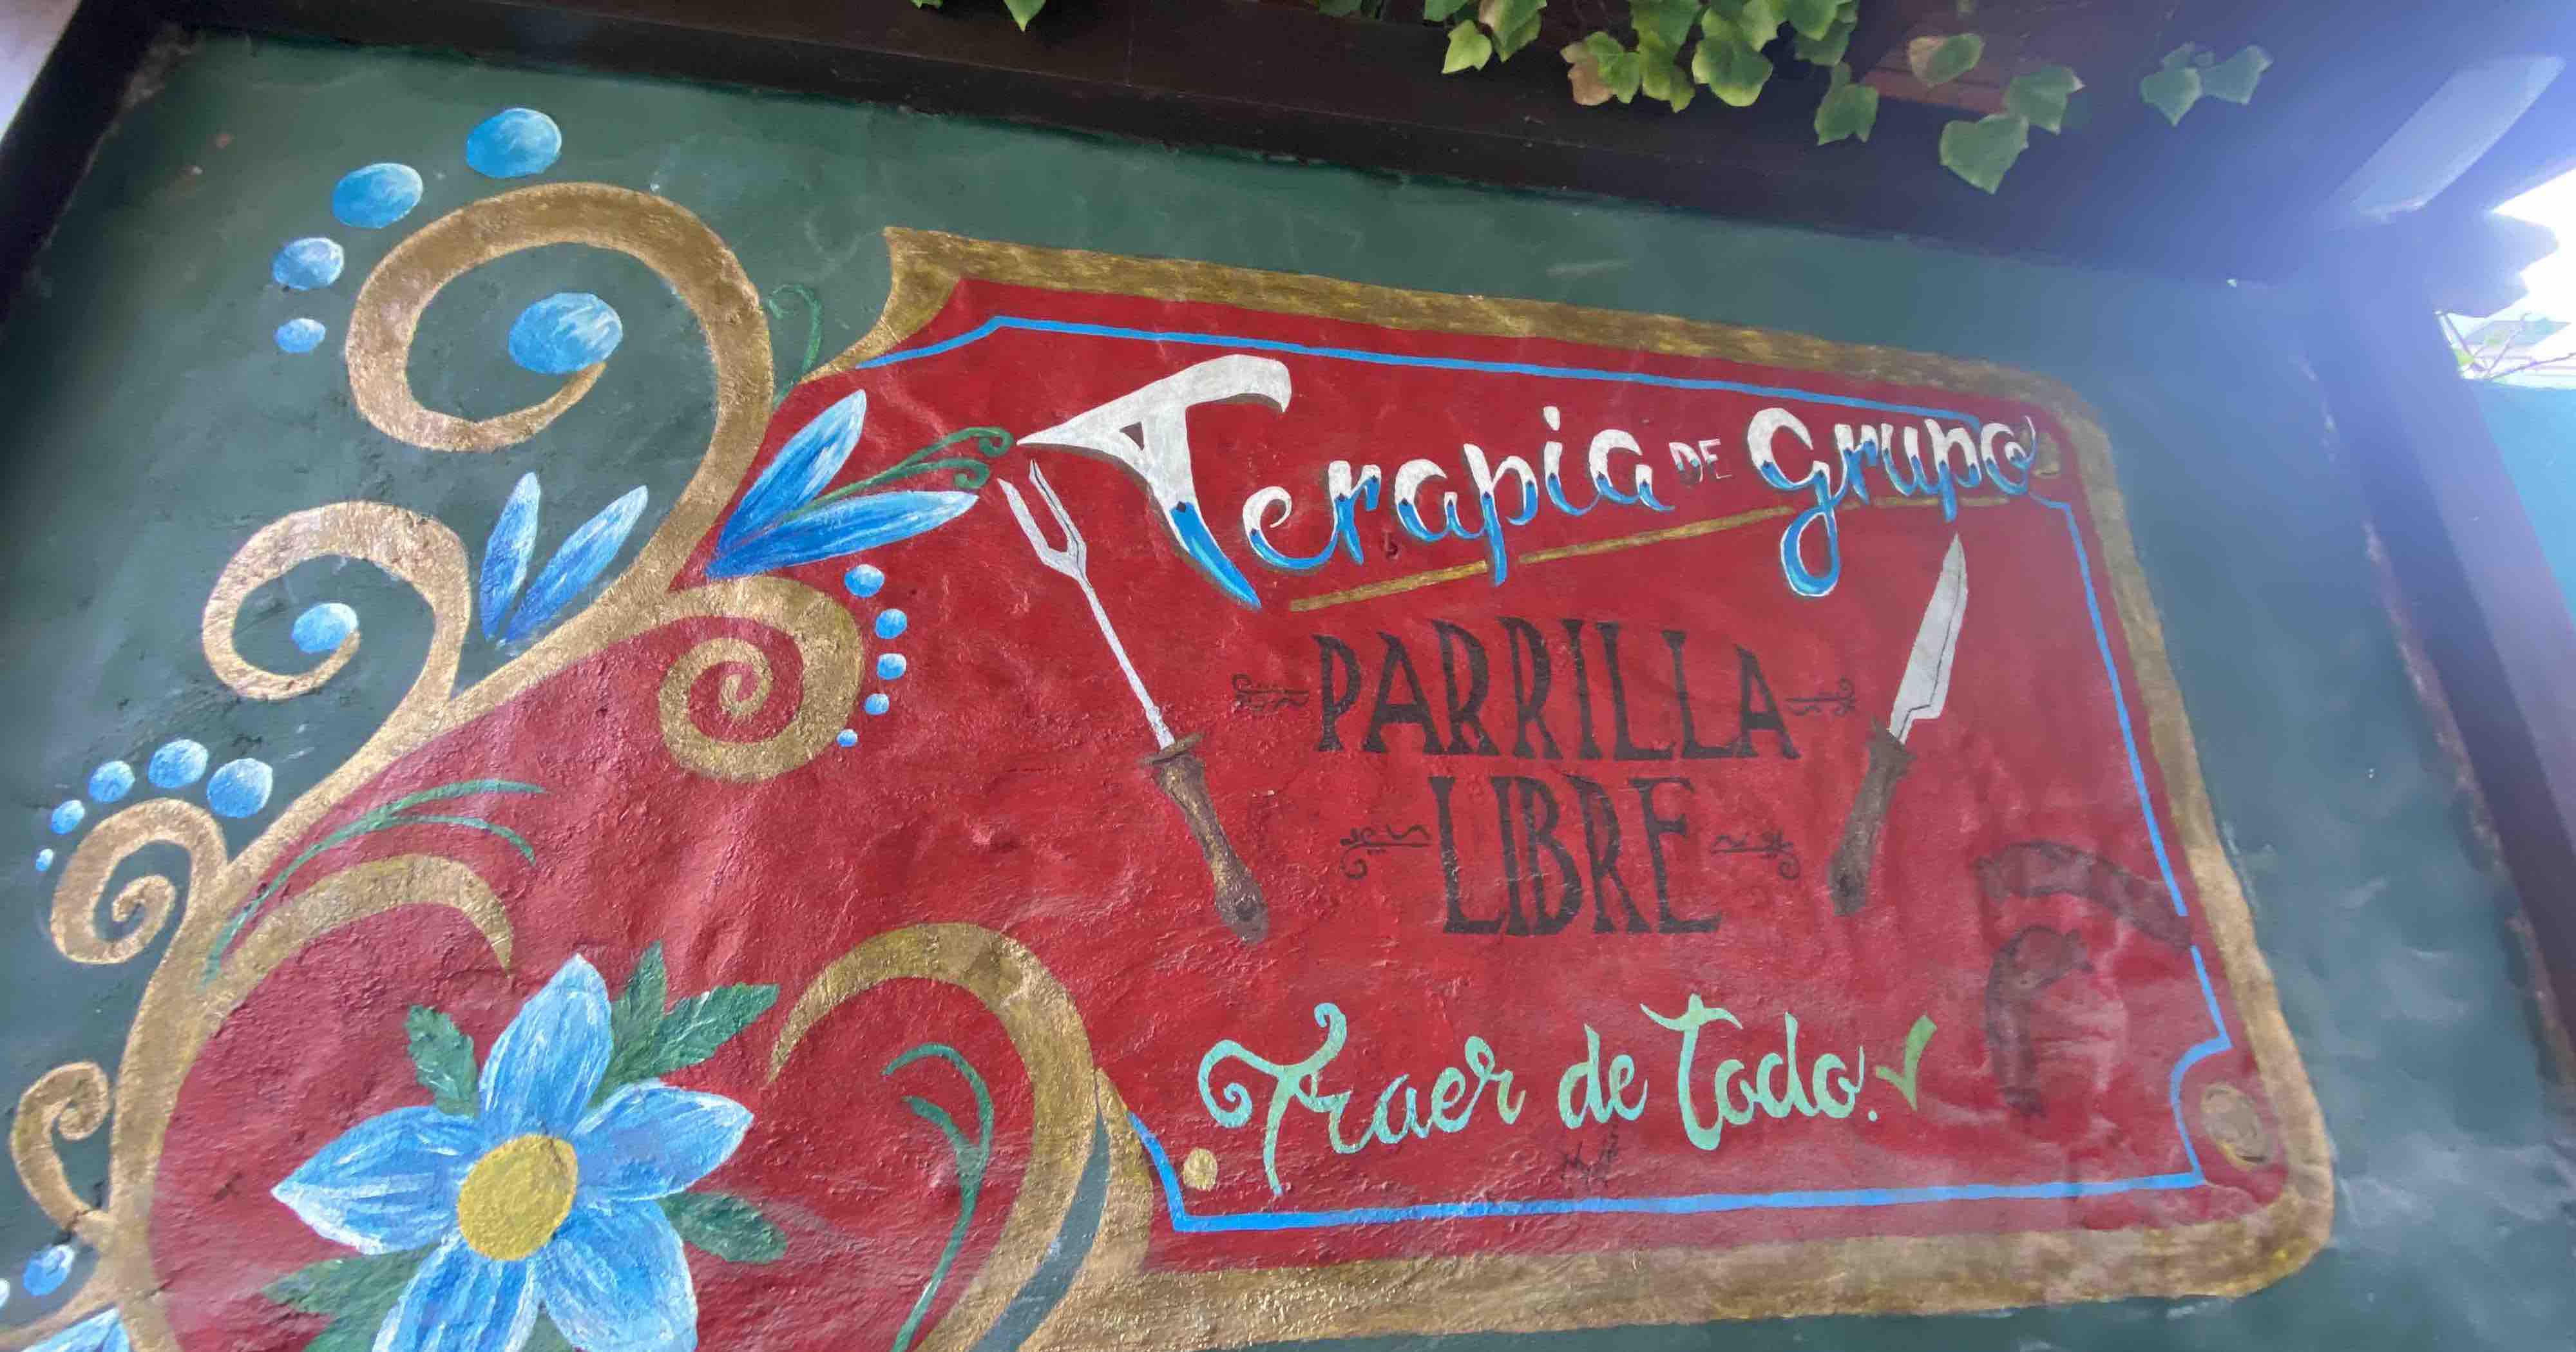 Terapia DE Grupo
PARRILLA
LIBRE
Traer de todo.